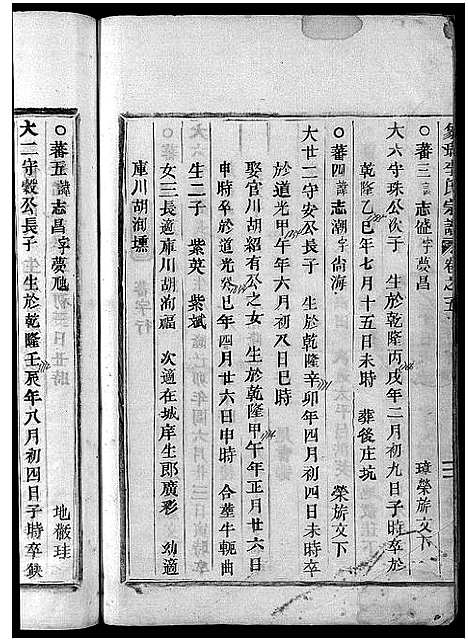 李氏宗譜 卷之五
○蕃三 諱志 字夢昌 璋榮旂文下
大六守珠公次子 生於乾隆丙戌年二月初九日子時卒於
乾隆乙巳年七月十五日未時 葬後庄坑
○蕃四 諱志潮 字尙海 榮旂文下
大廿二守安公長子 生於乾隆辛卯年四月初四日未時卒
於道光甲午年六月初八日巳時
娶官川胡紹有公之女 生於乾隆甲午年正月廿六日
申時卒於道光癸巳年四月廿六日申時 合葬牛軛曲
生二子 紫英 紫斌
女三長適庫川胡洵福 次適在城庠生郎廣彩 幼適
庫川胡洵壎
○蕃五 諱志昌 字夢旭 地散珪
大二守毅公長子 生於乾隆壬辰年八月初四日子時卒缺